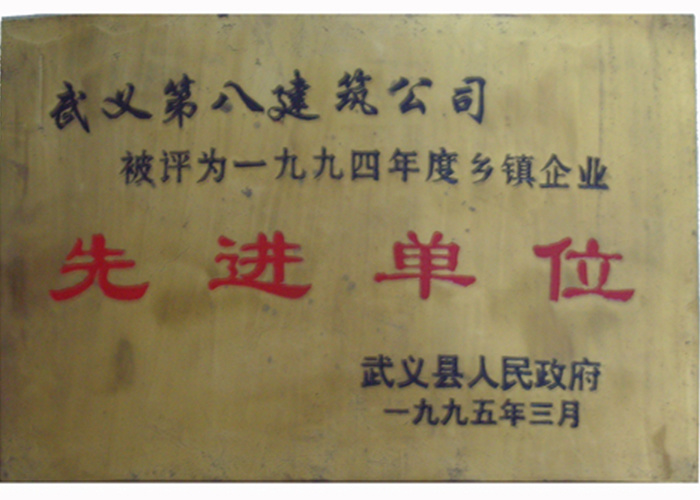 武义第八建筑公司
被评为一九九四年度乡镇企业
先进单位
武义县人民政府
一九九五年三月